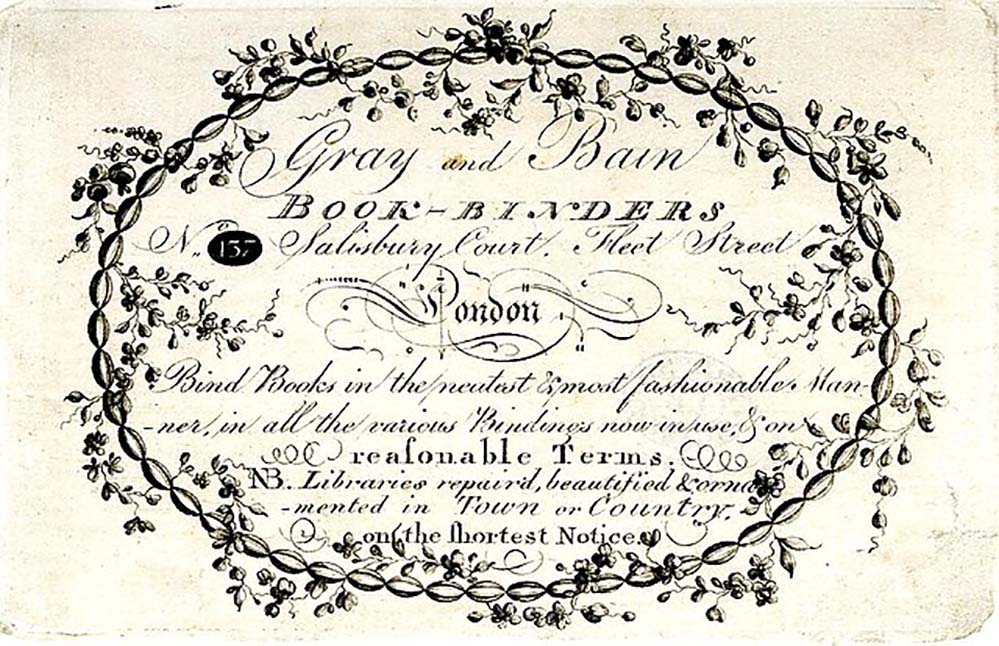 Gray and Bain
BOOK-BINDERS
No. 137 Salisbury Court, Fleet Street
London
Bind Books in the neatest & most fashionable Man-
-ner, in all the various Bindings now in use, & on
reaſonable Terms.
NB. Libraries repaird, beautified & orna
-mented in Town or Country,
on the ſhortest Notice.